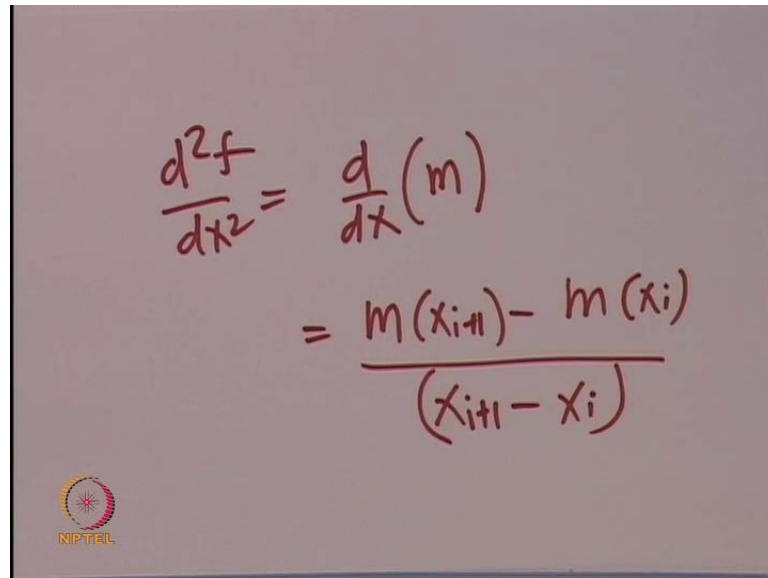 d²f/dx² = d/dx (m)
= m(xᵢ₊₁) - m(xᵢ) / (xᵢ₊₁ - xᵢ)
NPTEL